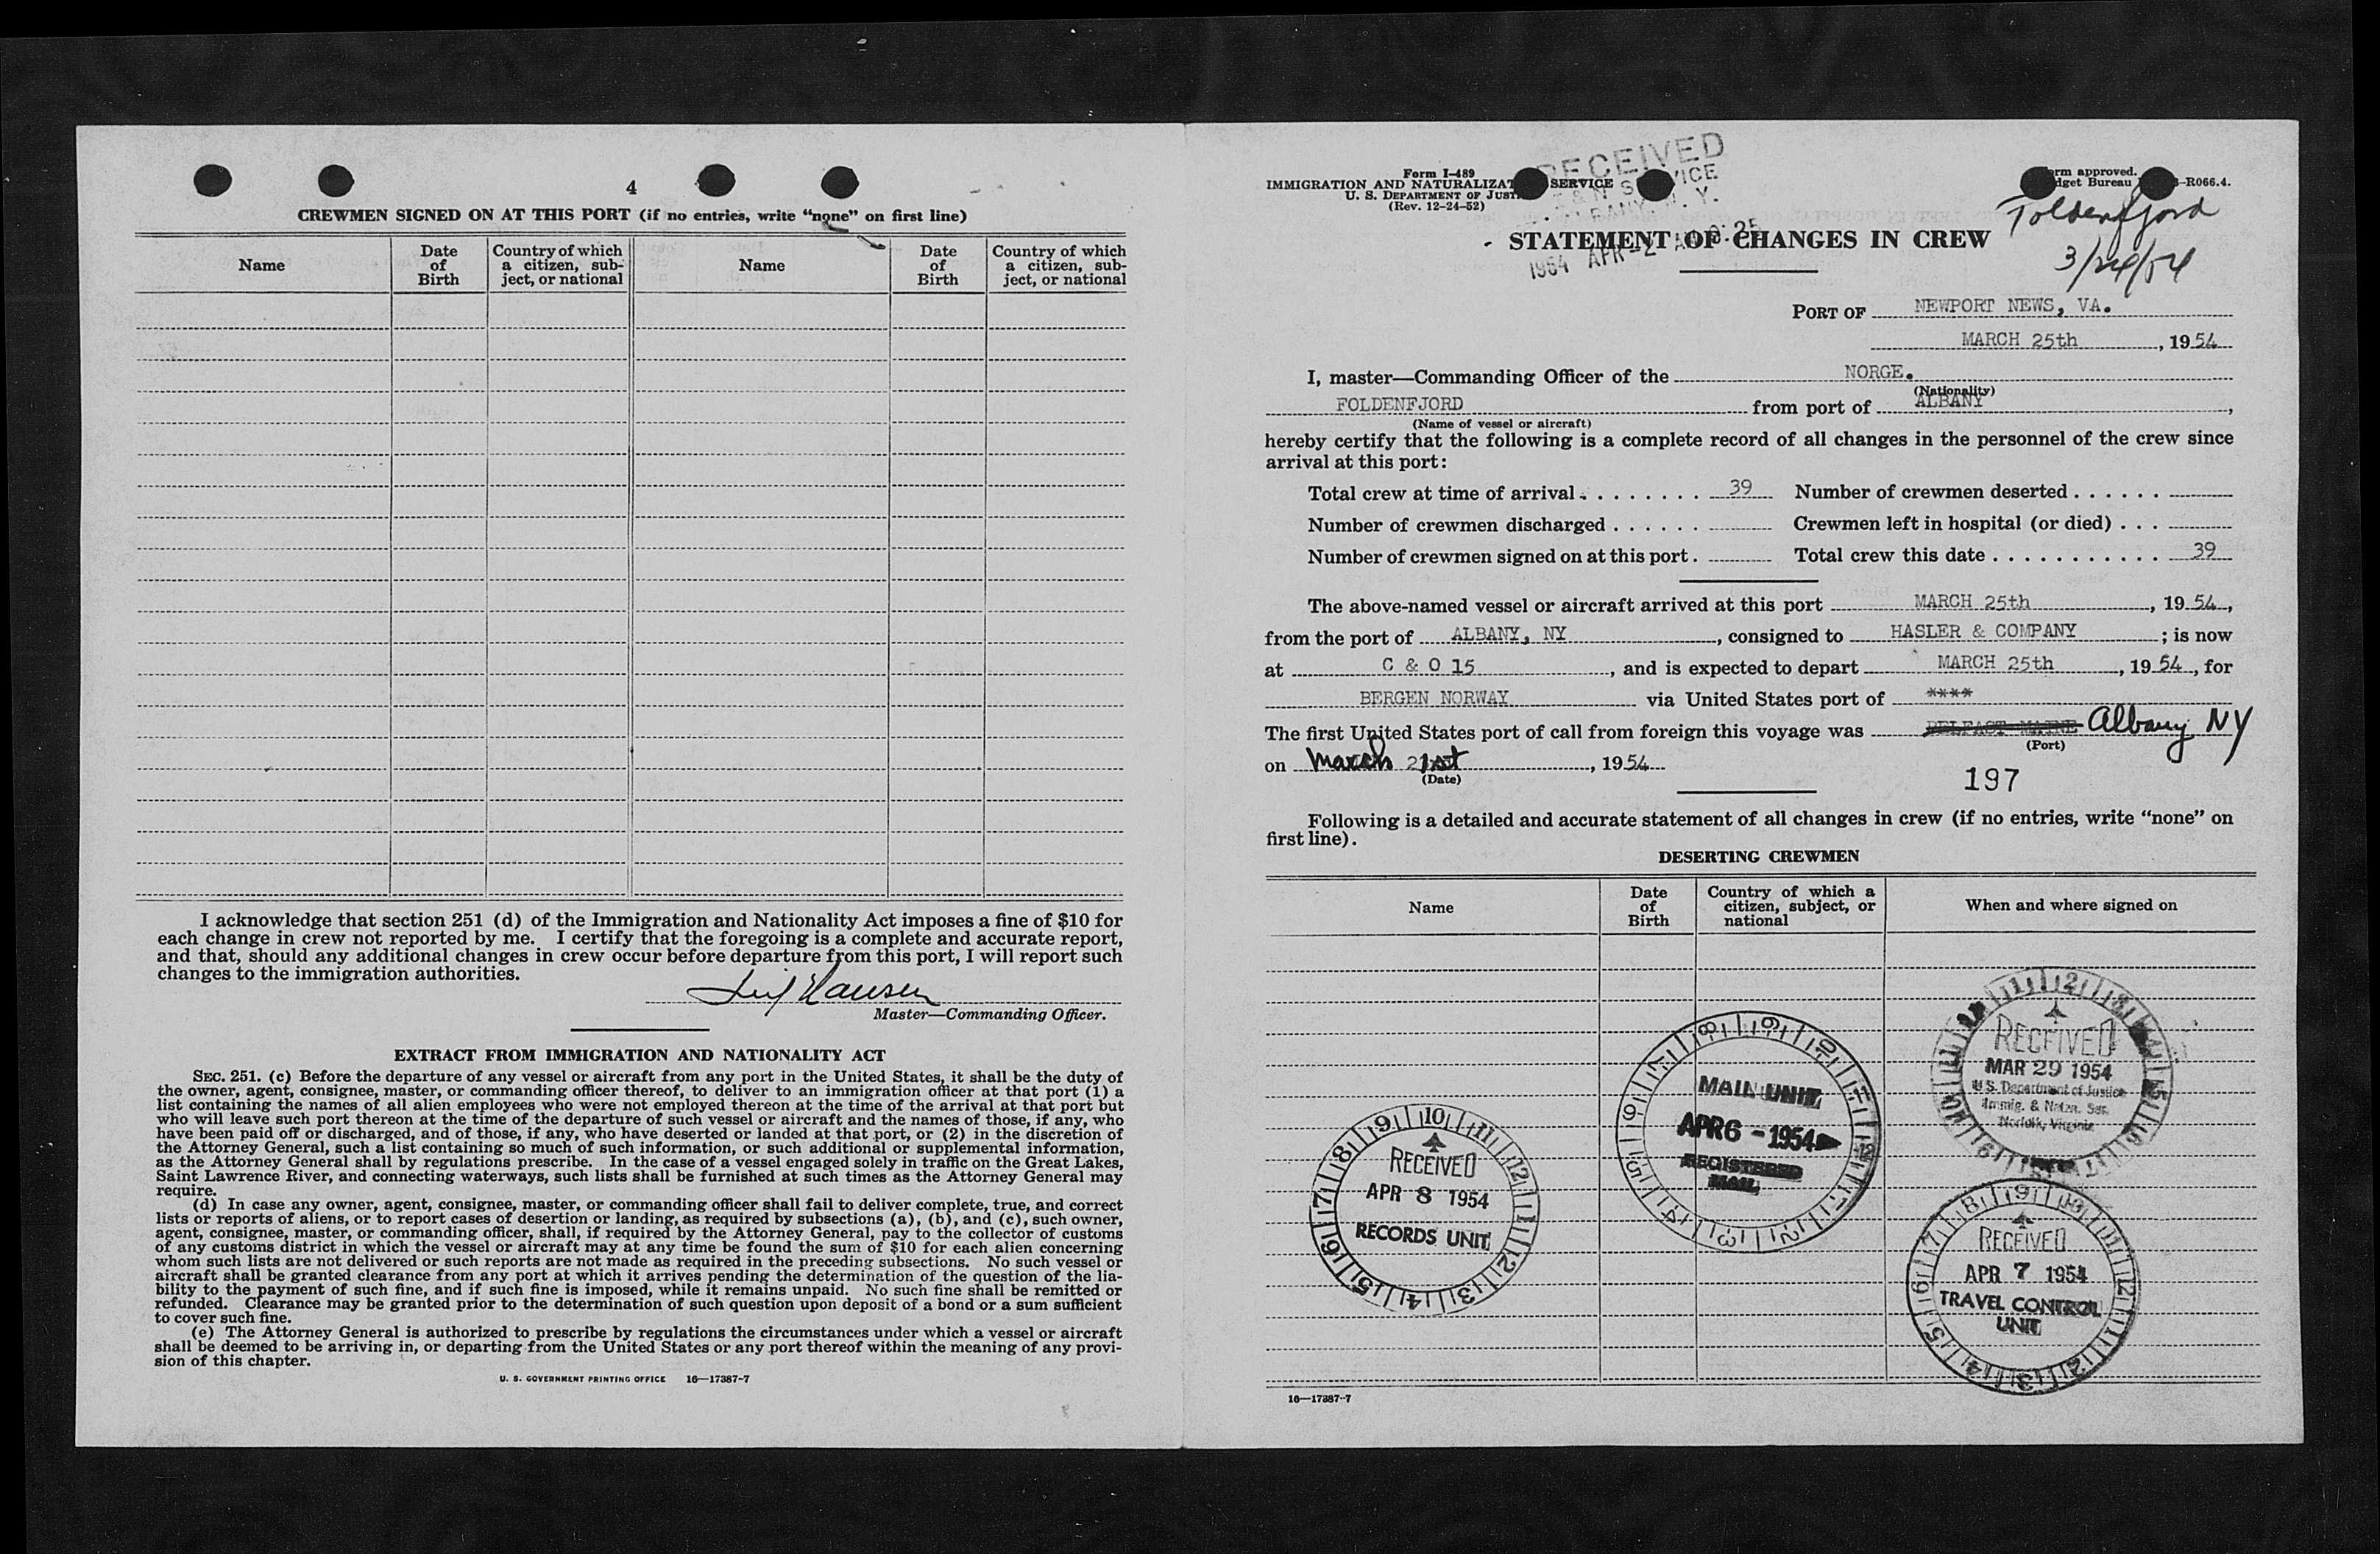 4
CREWMEN SIGNED ON AT THIS PORT (if no entries, write “none” on first line)
Name
Date of Birth
Country of which a citizen, subject, or national
Name
Date of Birth
Country of which a citizen, subject, or national
I acknowledge that section 251 (d) of the Immigration and Nationality Act imposes a fine of $10 for
each change in crew not reported by me. I certify that the foregoing is a complete and accurate report,
and that, should any additional changes in crew occur before departure from this port, I will report such
changes to the immigration authorities.
Leif Hansen
Master—Commanding Officer.
EXTRACT FROM IMMIGRATION AND NATIONALITY ACT
SEC. 251. (c) Before the departure of any vessel or aircraft from any port in the United States, it shall be the duty of
the owner, agent, consignee, master, or commanding officer thereof, to deliver to an immigration officer at that port (1) a
list containing the names of all alien employees who were not employed thereon at the time of the arrival at that port but
who will leave such port thereon at the time of the departure of such vessel or aircraft and the names of those, if any, who
have been paid off or discharged, and of those, if any, who have deserted or landed at that port, or (2) in the discretion of
the Attorney General, such a list containing so much of such information, or such additional or supplemental information,
as the Attorney General shall by regulations prescribe. In the case of a vessel engaged solely in traffic on the Great Lakes,
Saint Lawrence River, and connecting waterways, such lists shall be furnished at such times as the Attorney General may
require.
(d) In case any owner, agent, consignee, master, or commanding officer shall fail to deliver complete, true, and correct
lists or reports of aliens, or to report cases of desertion or landing, as required by subsections (a), (b), and (c), such owner,
agent, consignee, master, or commanding officer, shall, if required by the Attorney General, pay to the collector of customs
of any customs district in which the vessel or aircraft may at any time be found the sum of $10 for each alien concerning
whom such lists are not delivered or such reports are not made as required in the preceding subsections. No such vessel or
aircraft shall be granted clearance from any port at which it arrives pending the determination of the question of the lia-
bility to the payment of such fine, and if such fine is imposed, while it remains unpaid. No such fine shall be remitted or
refunded. Clearance may be granted prior to the determination of such question upon deposit of a bond or a sum sufficient
to cover such fine.
(e) The Attorney General is authorized to prescribe by regulations the circumstances under which a vessel or aircraft
shall be deemed to be arriving in, or departing from the United States or any port thereof within the meaning of any provi-
sion of this chapter.
U. S. GOVERNMENT PRINTING OFFICE 16—17387-7
Form I-489
IMMIGRATION AND NATURALIZAT SERVICE
U. S. DEPARTMENT OF JUST
(Rev. 12-24-52)
RECEIVED
ALBANY N. Y.
1954 APR-2
rm approved.
dget Bureau -R066.4.
Foldenfjord
3/24/54
STATEMENT OF CHANGES IN CREW
PORT OF NEWPORT NEWS, VA.
MARCH 25th, 1954
I, master—Commanding Officer of the NORGE.
(Nationality)
FOLDENFJORD from port of ALBANY,
(Name of vessel or aircraft)
hereby certify that the following is a complete record of all changes in the personnel of the crew since
arrival at this port:
Total crew at time of arrival 39 Number of crewmen deserted
Number of crewmen discharged Crewmen left in hospital (or died)
Number of crewmen signed on at this port Total crew this date 39
The above-named vessel or aircraft arrived at this port MARCH 25th, 1954,
from the port of ALBANY, NY, consigned to HASLER & COMPANY; is now
at C & O 15, and is expected to depart MARCH 25th, 1954, for
BERGEN NORWAY via United States port of ****
The first United States port of call from foreign this voyage was BELFAST MAINE Albany NY
(Port)
on March 21st, 1954
(Date)
197
Following is a detailed and accurate statement of all changes in crew (if no entries, write “none” on
first line).
DESERTING CREWMEN
Name
Date of Birth
Country of which a citizen, subject, or national
When and where signed on
RECEIVED
MAR 29 1954
U.S. Department of Justice
Immig. & Natzn. Ser.
Norfolk, Virginia
MAIL UNIT
APR 6 - 1954
REGISTERED
MAIL
RECEIVED
APR 8 1954
RECORDS UNIT
RECEIVED
APR 7 1954
TRAVEL CONTROL
UNIT
16—17387-7